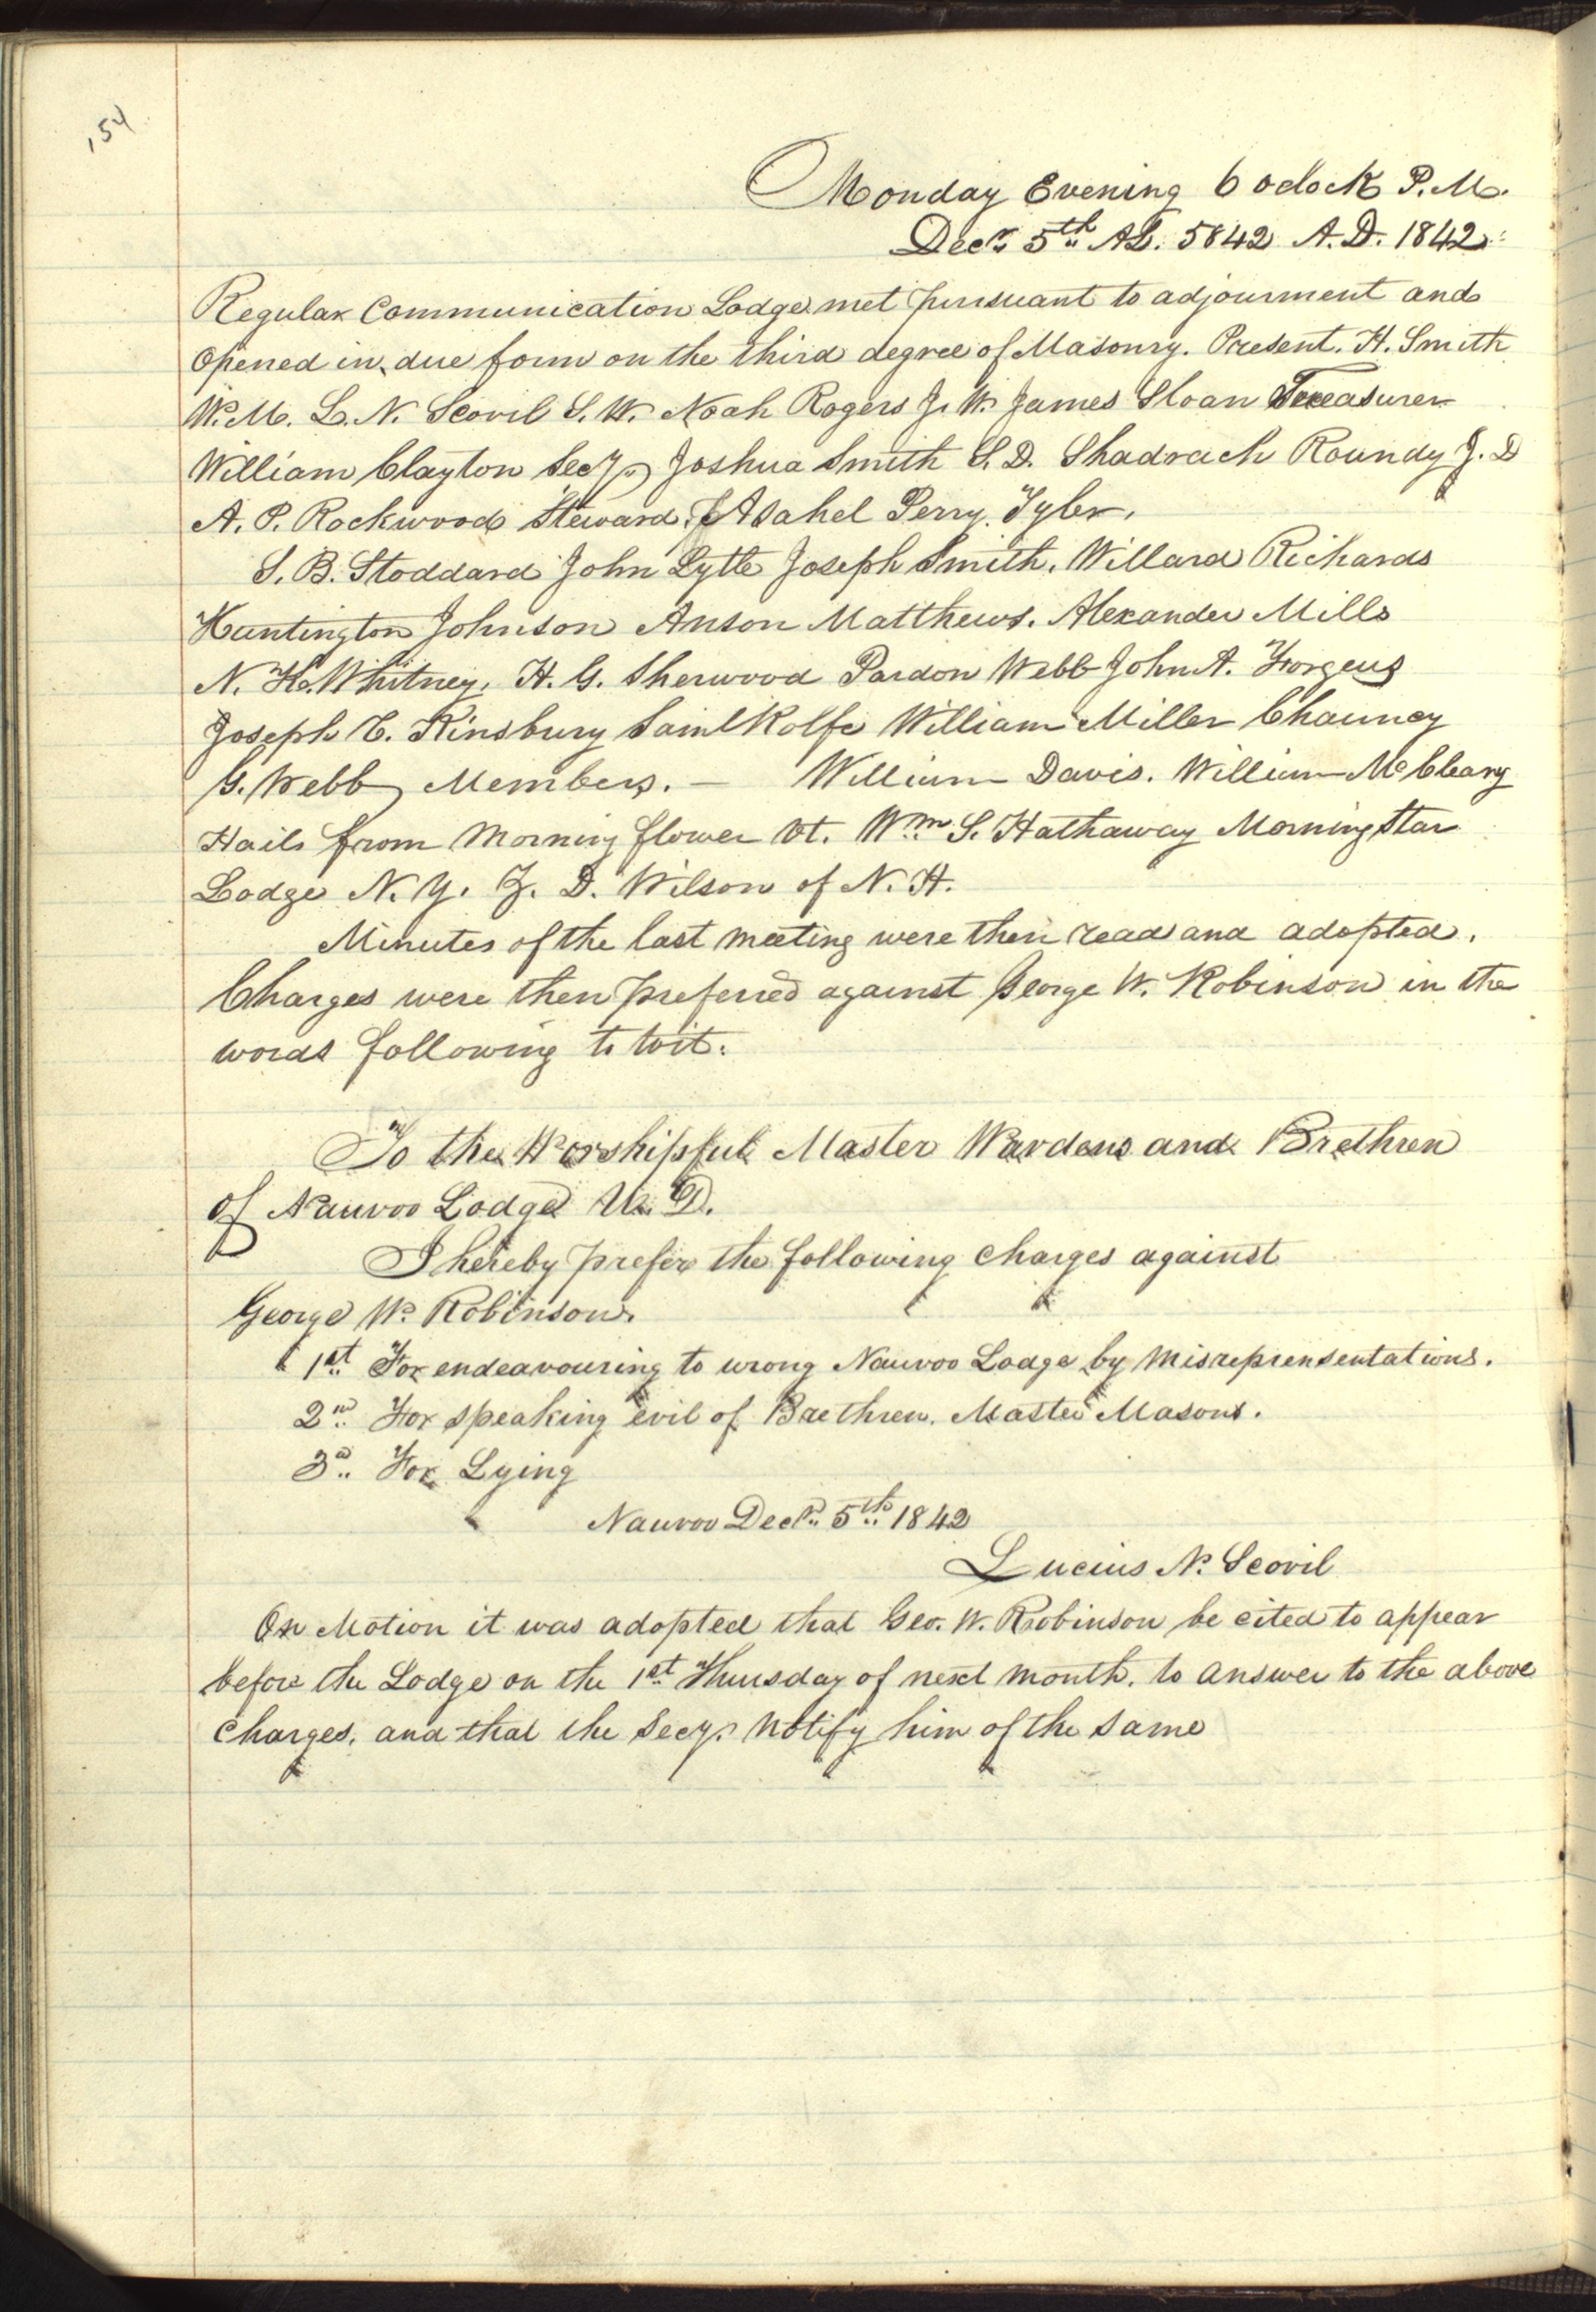 154
Monday Evening 6 oclock P.M.
Decr. 5th AL. 5842 A.D. 1842
Regular Communication Lodge met pursuant to adjournment and
opened in due form on the third degree of Masonry. Present. H. Smith
W.M. L. N. Scovil S. W. Noah Rogers J. W. James Sloan Treasurer
William Clayton Secy. Joshua Smith S. D. Shadrach Roundy J. D
A. P. Rockwood Steward, Asahel Perry Tyler.
S. B. Stoddard John Lytle Joseph Smith. Willard Richards
Huntington Johnson Anson Matthews. Alexander Mills
N. K. Whitney, H. G. Sherwood Pardon Webb John A. Forgeus
Joseph C. Kinsbury Saml Rolfe William Miller Chauncy
G. Webb Members. — William Davis. William McCleary
Hails from Morning flower Vt. Wm. S. Hathaway Morning Star
Lodge N. Y. J. D. Wilson of N. H.
Minutes of the last meeting were then read and adopted.
Charges were then preferred against George W. Robinson in the
words following to wit.
To the Worshipful Master Wardens and Brethren
of Nauvoo Lodge U. D.
I hereby prefer the following charges against
George W. Robinson.
1st For endeavouring to wrong Nauvoo Lodge by misreprensentations.
2nd For speaking evil of Brethren. Master Masons.
3d For Lying
Nauvoo Decr. 5th 1842
Lucius N. Scovil
On Motion it was adopted that Geo. W. Robinson be cited to appear
before the Lodge on the 1st Thursday of next month. to answer to the above
charges. and that the Secy. notify him of the same